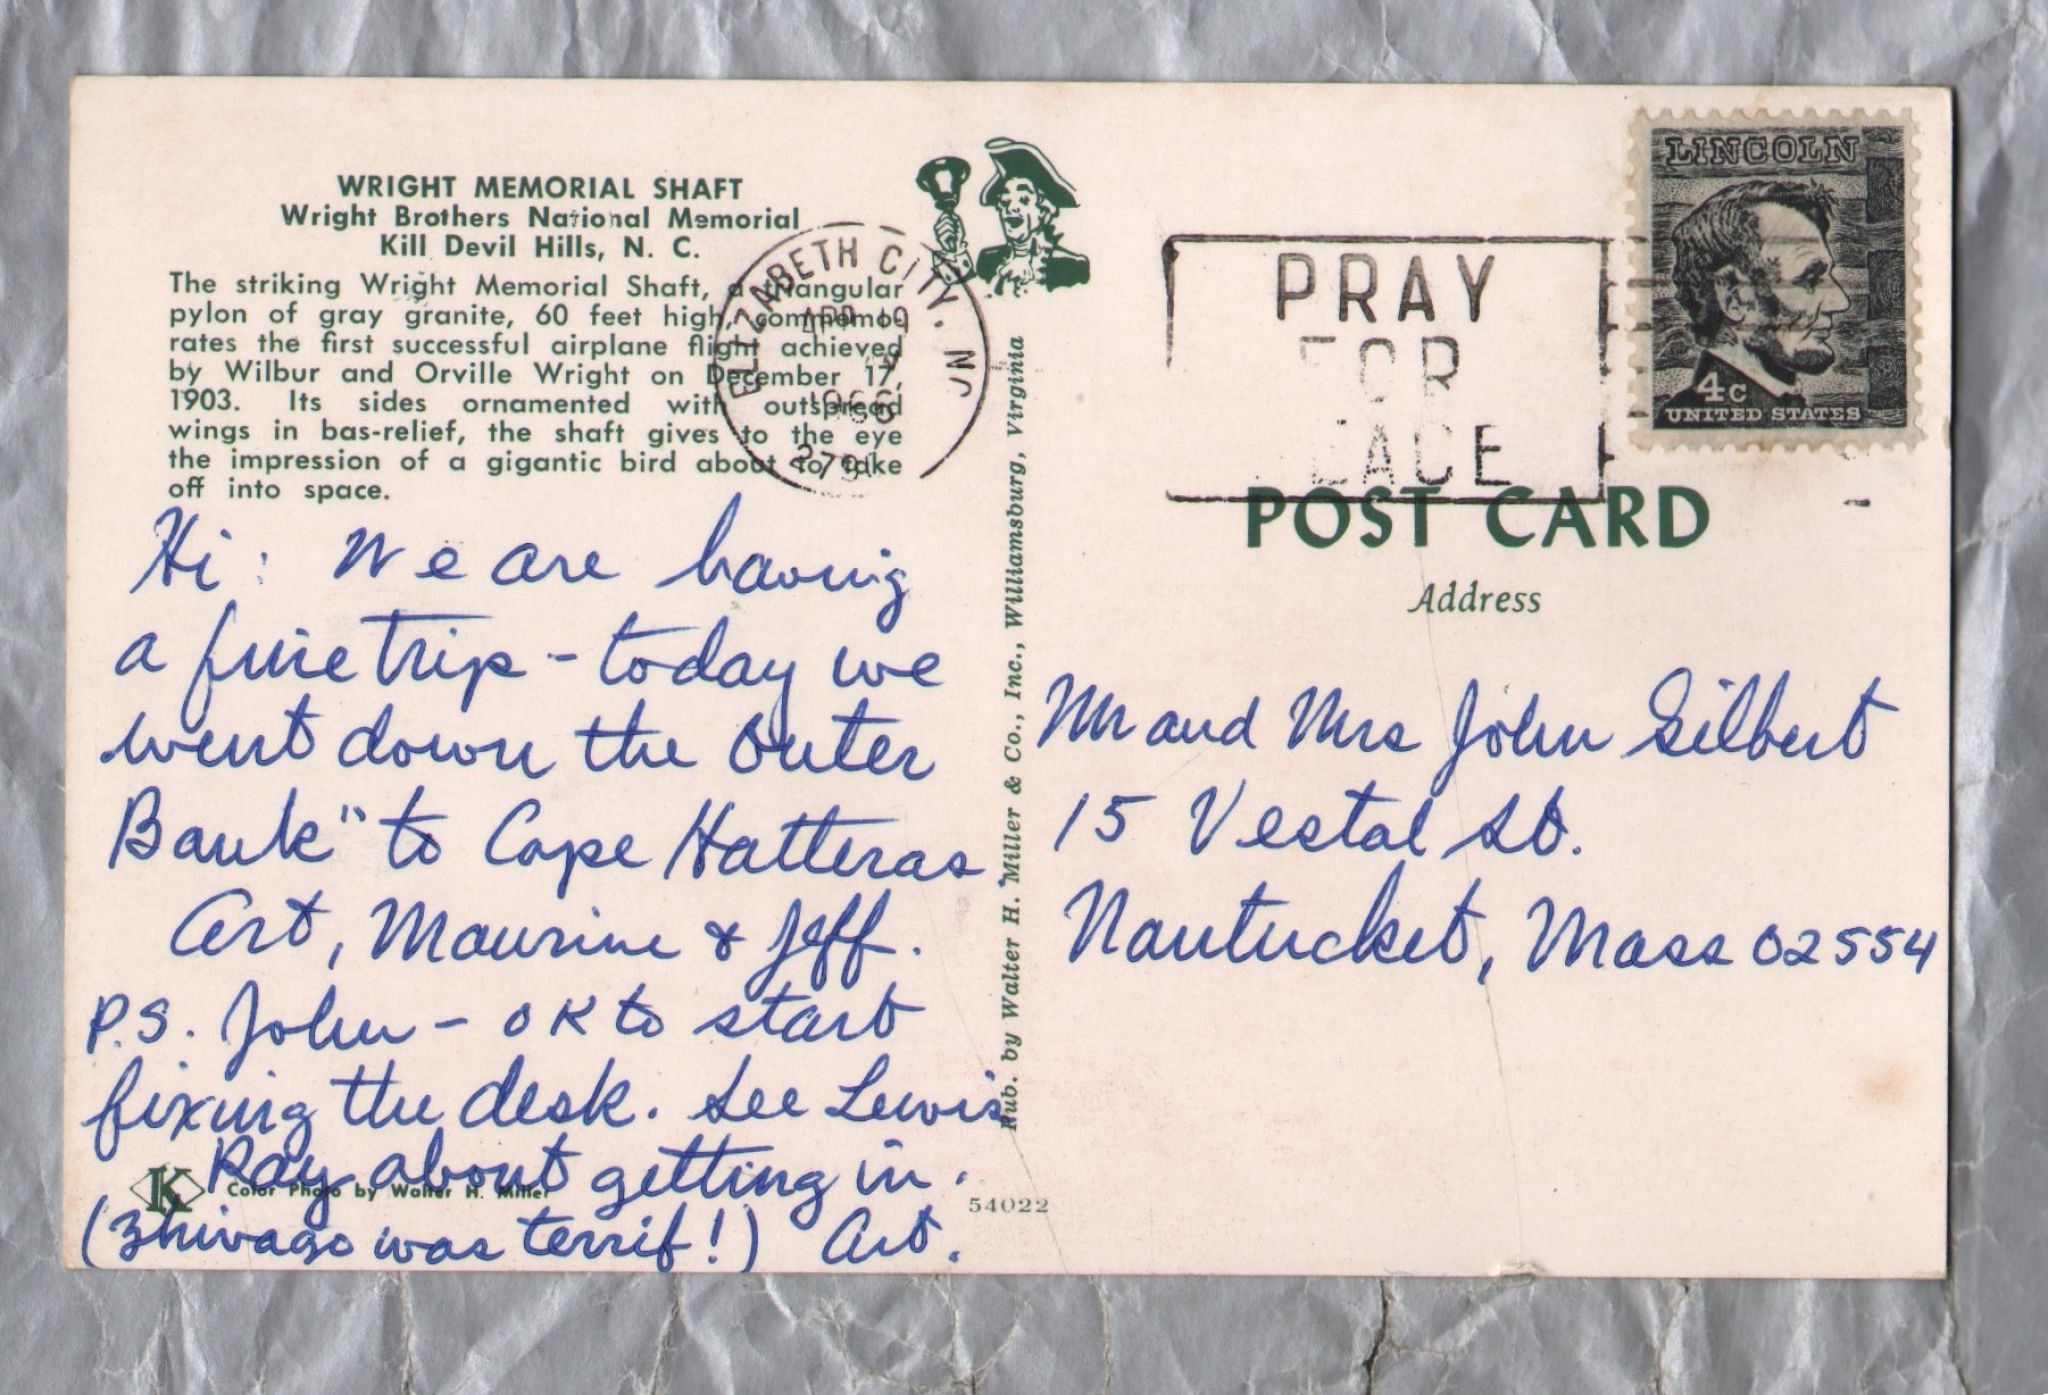 WRIGHT MEMORIAL SHAFT
Wright Brothers National Memorial
Kill Devil Hills, N. C.
The striking Wright Memorial Shaft, a triangular
pylon of gray granite, 60 feet high, commemo-
rates the first successful airplane flight achieved
by Wilbur and Orville Wright on December 17,
1903. Its sides ornamented with outspread
wings in bas-relief, the shaft gives to the eye
the impression of a gigantic bird about to take
off into space.
Hi: We are having
a fine trip - today we
went down the Outer
Bank" to Cape Hatteras.
Art, Maurine & Jeff.
P.S. John - OK to start
fixing the desk. See Lewis
Ray about getting in.
(Zhivago was terrif!) Art.
K
Color Photo by Walter H. Miller
54022
Pub. by Walter H. Miller & Co., Inc., Williamsburg, Virginia
ELIZABETH CITY, NC
APR 19
1966
PRAY
FOR
PEACE
LINCOLN
4c
UNITED STATES
POST CARD
Address
Mr and Mrs John Gilbert
15 Vestal St.
Nantucket, Mass 02554